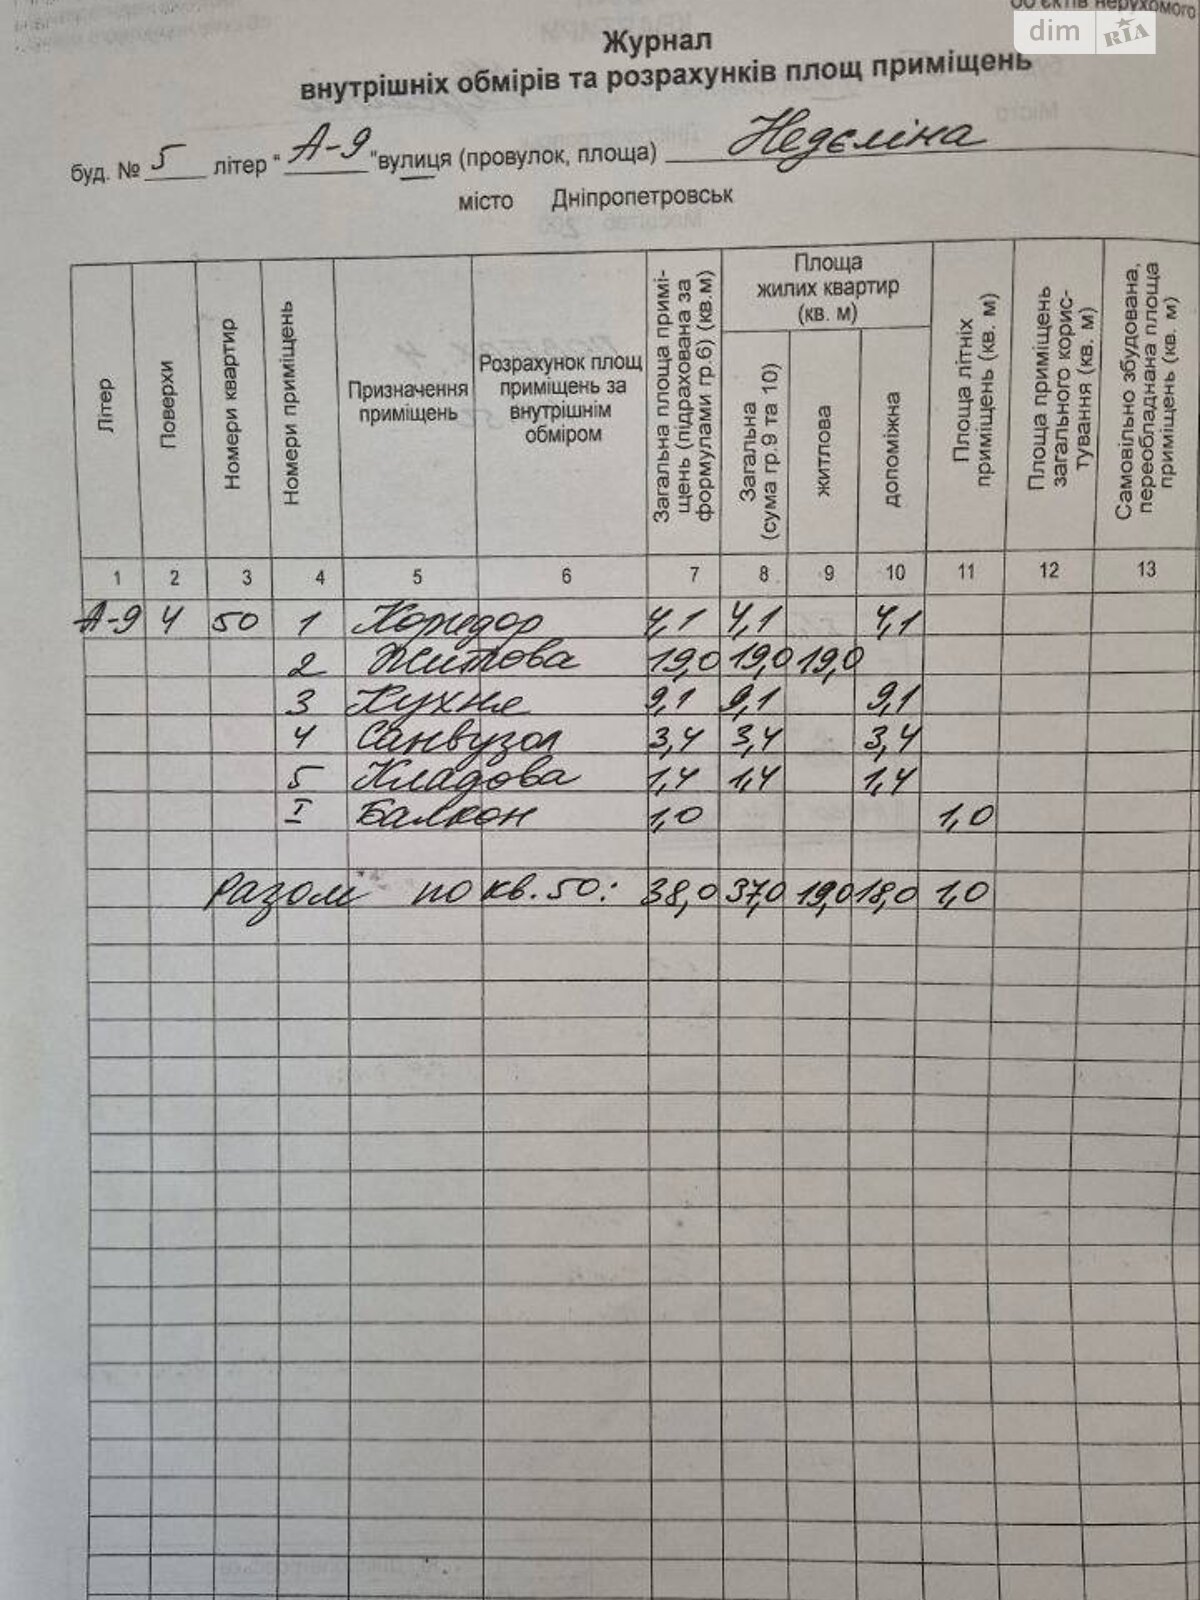 об'єктів нерухомого
dim RIA
Журнал
внутрішніх обмірів та розрахунків площ приміщень
буд. № 5 літер "А-9" вулиця (провулок, площа) Недєліна
місто Дніпропетровськ
Літер
Поверхи
Номери квартир
Номери приміщень
Призначення
приміщень
Розрахунок площ
приміщень за
внутрішнім
обміром
Загальна площа примі-
щень (підрахована за
формулами гр.6) (кв.м)
Площа
жилих квартир
(кв. м)
Загальна
(сума гр.9 та 10)
житлова
допоміжна
Площа літніх
приміщень (кв. м)
Площа приміщень
загального корис-
тування (кв. м)
Самовільно збудована,
переобладнана площа
приміщень (кв. м)
1 2 3 4 5 6 7 8 9 10 11 12 13
А-9 4 50 1 Коридор 4,1 4,1 4,1
2 Житлова 19,0 19,0 19,0
3 Кухня 9,1 9,1 9,1
4 Санвузол 3,4 3,4 3,4
5 Кладова 1,4 1,4 1,4
I Балкон 1,0 1,0
Разом по кв. 50: 38,0 37,0 19,0 18,0 1,0